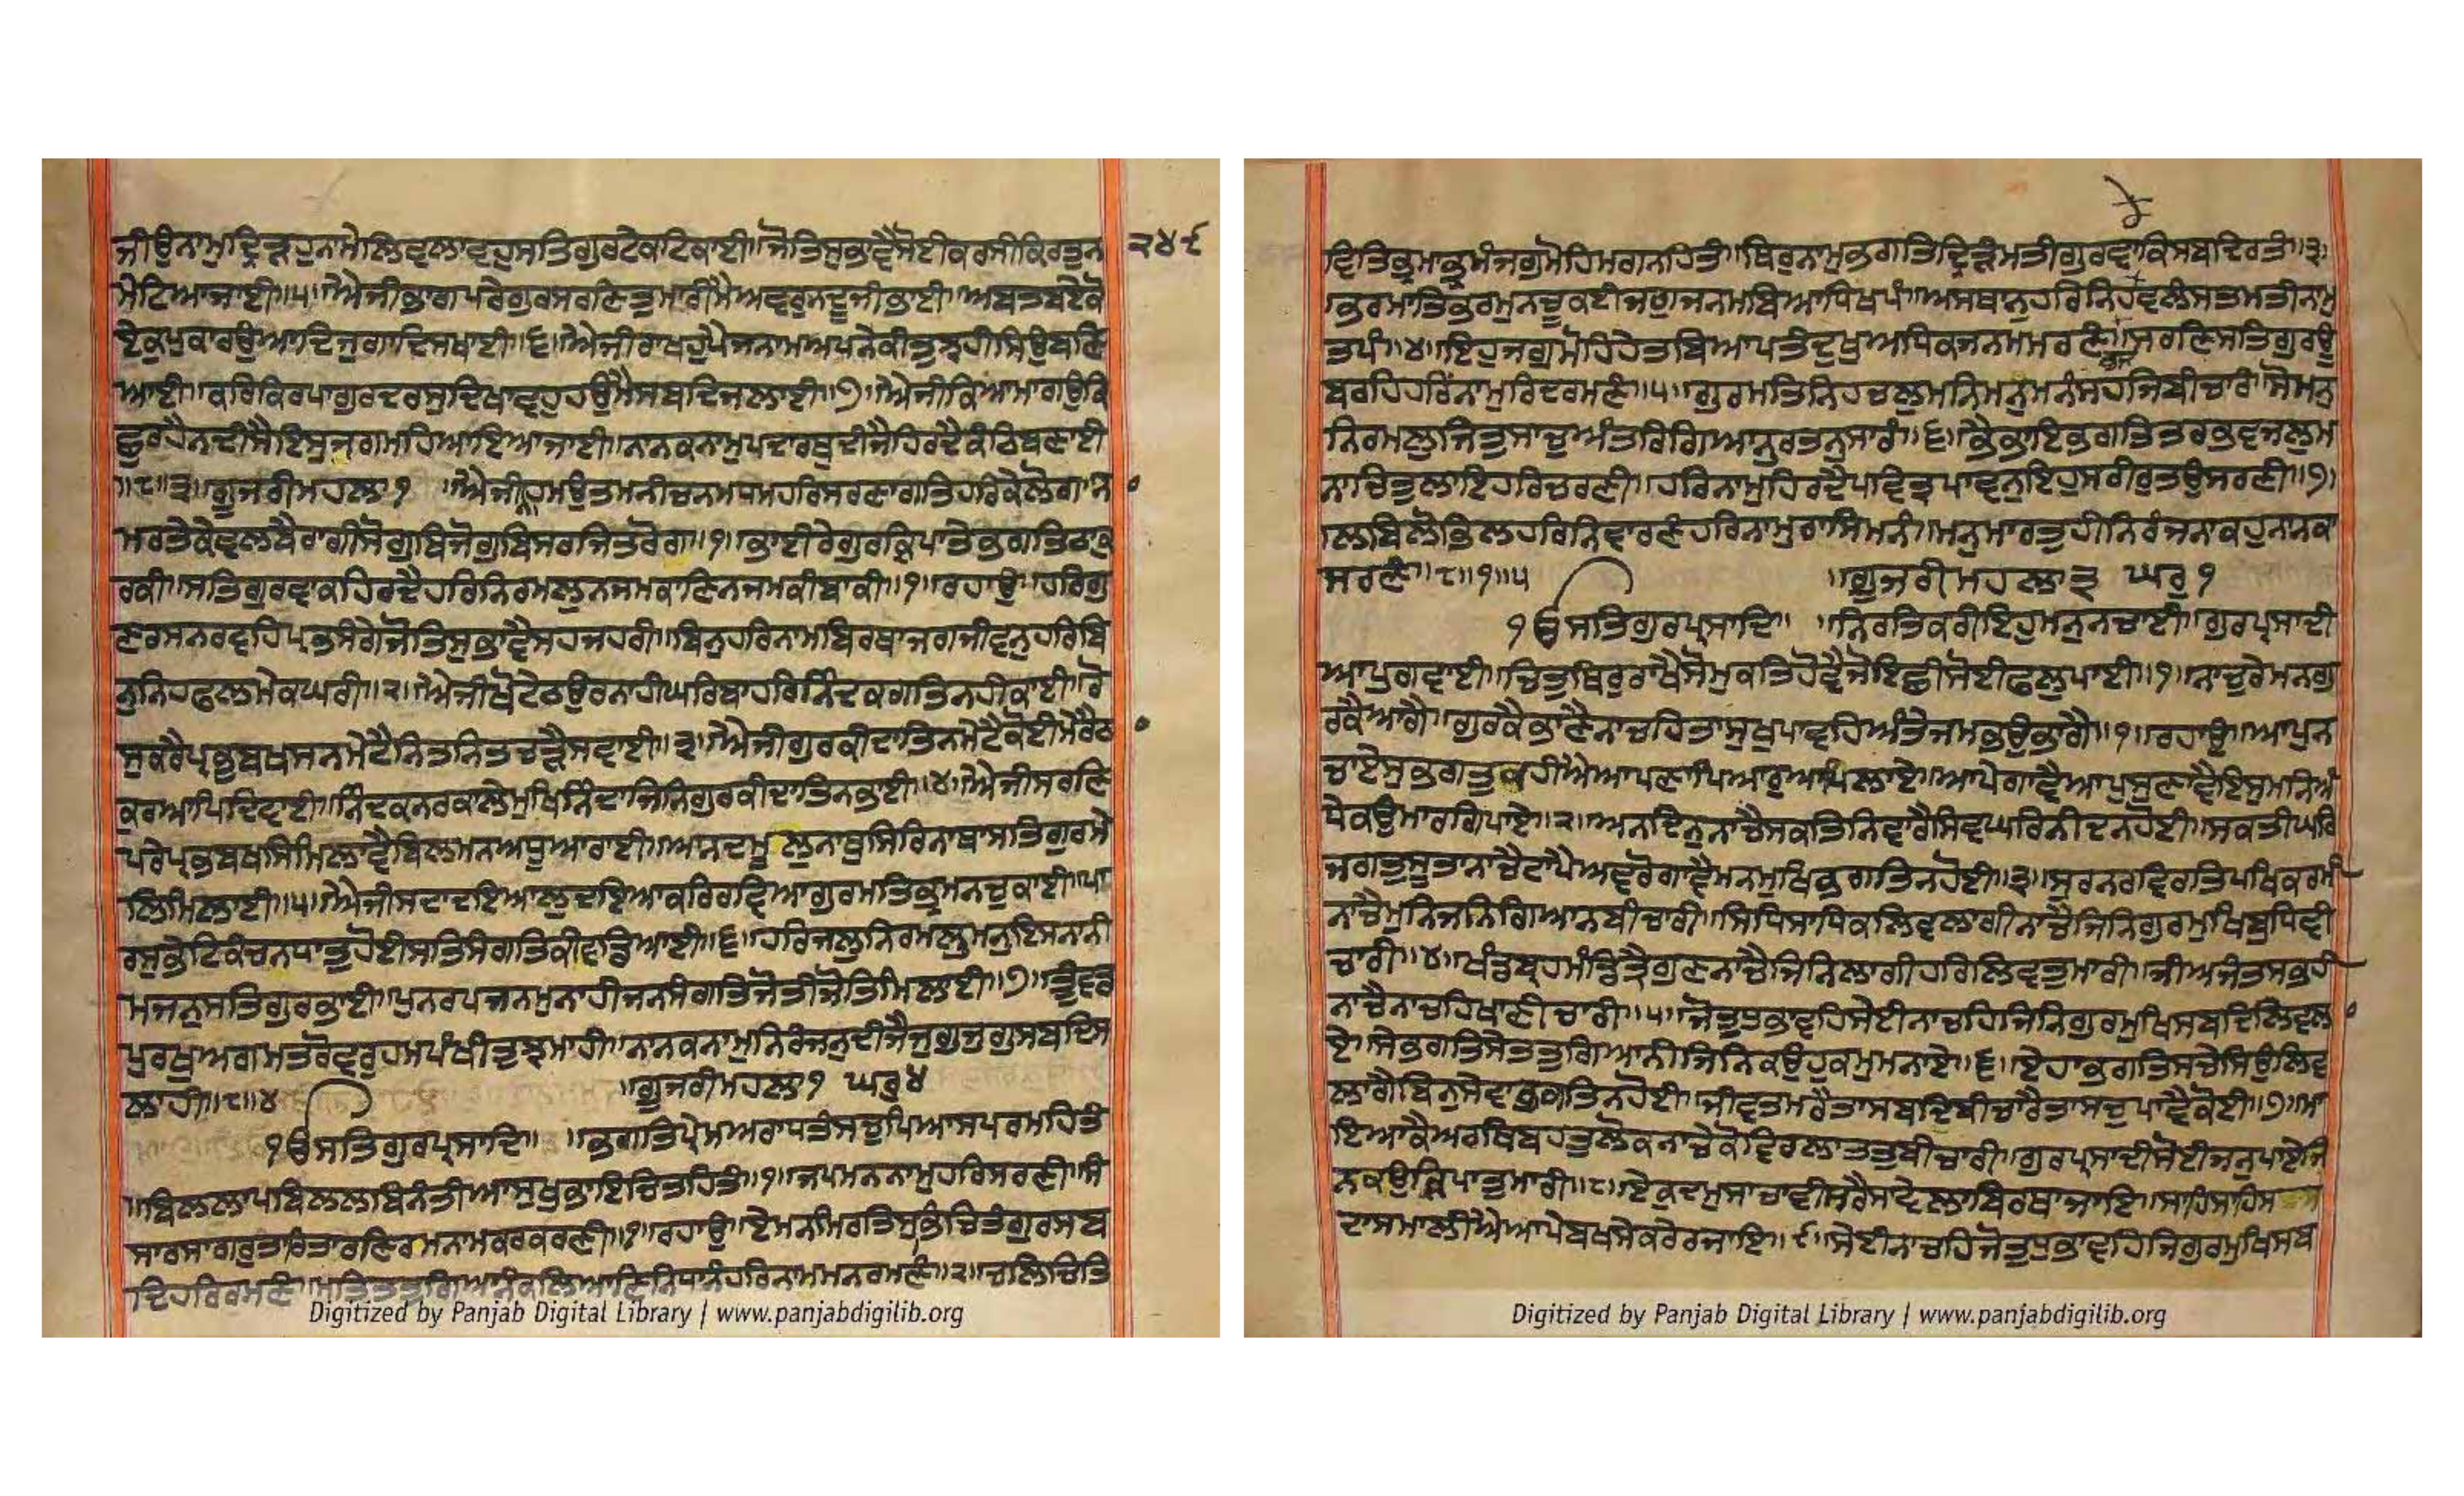 ਜੀਉਨਾਮੁਦ੍ਰਿੜਹੁਨਾਮੇਲਿਵਲਾਵਹੁਸਤਿਗੁਰਟੇਕਟਿਕਾਈ॥ਜੋਤਿਸੁਭਾਵੈਸੋਈਕਰਸੀਕਿਰਤੁਨ
੨੪੯
ਮੇਟਿਆਜਾਈ॥੫॥ਐਜੀਭਾਗਪਰੇਗੁਰਸਰਣਿਤੁਮਾਰੀਮੈਅਵਰੁਨਦੂਜੀਭਾਈ॥ਅਬਤਬਏਕੋ
ਏਕੁਪੁਕਾਰਉਆਦਿਜੁਗਾਦਿਸਖਾਈ॥੬॥ਐਜੀਰਾਖਹੁਪੈਜਨਾਮਅਪਨੇਕੀਤੁਝਹੀਸਿਉਬਣਿ
ਆਈ॥ਕਰਿਕਿਰਪਾਗੁਰਦਰਸੁਦਿਖਾਵਹੁਹਉਮੈਸਬਦਿਜਲਾਈ॥੭॥ਐਜੀਕਿਆਮਾਗਉਕਿ
ਛੁਰਹੈਨਦੀਸੈਇਸੁਜਗਮਹਿਆਇਆਜਾਈ॥ਨਾਨਕਨਾਮੁਪਦਾਰਥੁਦੀਜੈਹਿਰਦੈਕੰਠਿਬਣਾਈ
॥੮॥੩॥ਗੂਜਰੀਮਹਲਾ੧ ॥ਐਜੀਨਾਹਮਉਤਮਨੀਚਨਮਧਮਹਰਿਸਰਣਾਗਤਿਹਰਿਕੇਲੋਗ॥ਨਾ
ਮਰਤੇਕੇਵਲਬੈਰਾਗੀਸੋਗੁਬਿਜੋਗੁਬਿਸਰਜਿਤਰੋਗ॥੧॥ਭਾਈਰੇਗੁਰਕ੍ਰਿਪਾਤੇਭਗਤਿਠਾਕੁ
ਰਕੀ॥ਸਤਿਗੁਰਵਾਕਹਿਰਦੈਹਰਿਨਿਰਮਲੁਨਜਮਕਾਣਿਨਜਮਕੀਬਾਕੀ॥੧॥ਰਹਾਉ॥ਹਰਿਗੁ
ਣਰਸਨਰਵਹਿਪ੍ਰਭਸੰਗੇਜੋਤਿਸੁਭਾਵੈਸਹਜਹਰੀ॥ਬਿਨੁਹਰਿਨਾਮਬਿਰਥਾਜਗਜੀਵਨੁਹਰਿਬਿ
ਨੁਨਿਹਫਲਮੇਕਘਰੀ॥੨॥ਐਜੀਖੋਟੇਠਉਰਨਾਹੀਘਰਿਬਾਹਰਿਨਿੰਦਕਗਤਿਨਹੀਕਾਈ॥ਰੋ
ਸੁਕਰੈਪ੍ਰਭੁਬਖਸਨਮੇਟੈਨਿਤਨਿਤਚੜੈਸਵਾਈ॥੩॥ਐਜੀਗੁਰਕੀਦਾਤਿਨਮੇਟੈਕੋਈਮੇਰੈਠਾ
ਕੁਰਆਪਿਦਿਵਾਈ॥ਨਿੰਦਕਨਰਕਾਲੇਮੁਖਿਨਿੰਦਾਜਿਨਿਗੁਰਕੀਦਾਤਿਨਭਾਈ॥੪॥ਐਜੀਸਰਣਿ
ਪਰੇਪ੍ਰਭਬਖਸਿਮਿਲਾਵੈਬਿਲਮਨਅਧੂਆਰਾਈ॥ਆਨਦਮੂਲੁਨਾਥੁਸਿਰਿਨਾਥਾਸਤਿਗੁਰਮੇ
ਲਿਮਿਲਾਈ॥੫॥ਐਜੀਸਦਾਦਇਆਲੁਦਇਆਕਰਿਰਵਿਆਗੁਰਮਤਿਭ੍ਰਮਨਚੁਕਾਈ॥ਪਾ
ਰਸੁਭੇਟਿਕੰਚਨਧਾਤੁਹੋਈਸਤਿਸੰਗਤਿਕੀਵਡਿਆਈ॥੬॥ਹਰਿਜਲੁਨਿਰਮਲੁਮਨੁਇਸਨਾਨੀ
ਮਜਨੁਸਤਿਗੁਰਭਾਈ॥ਪੁਨਰਪਜਨਮੁਨਾਹੀਜਨਸੰਗਤਿਜੋਤੀਜੋਤਿਮਿਲਾਈ॥੭॥ਤੂੰਵਡ
ਪੁਰਖੁਅਗਮਤਰੋਵਰੁਹਮਪੰਖੀਤੁਝਮਾਹੀ॥ਨਾਨਕਨਾਮੁਨਿਰੰਜਨੁਦੀਜੈਜੁਗੁਜੁਗੁਸਬਦਿਸ
ਲਾਹੀ॥੮॥੪ ॥ਗੂਜਰੀਮਹਲਾ੧ ਘਰੁ੪
੧ਓਸਤਿਗੁਰਪ੍ਰਸਾਦਿ॥ ॥ਭਗਤਿਪ੍ਰੇਮਅਰਾਧਤੰਸਚੁਪਿਆਸਪਰਮਹਿਤੰ
॥ਬਿਲਲਾਪਬਿਲਲਬਿਨੰਤੀਆਸੁਖੁਭਾਇਚਿਤਹਿਤੰ॥੧॥ਜਪਮਨਨਾਮੁਹਰਿਸਰਣੀ॥ਸੰ
ਸਾਰਸਾਗਰੁਤਾਰਿਤਾਰਣਿਰਮਨਾਮਕਰਕਰਣੀ॥੧॥ਰਹਾਉ॥ਏਮਨਮਿਰਤਿਸੁਭੰਚਿਤੰਗੁਰਸਬ
ਦਿਹਰਿਰਮਣੰ॥ਮਤਿਤਤੁਗਿਆਨੰਕਲਿਆਣਿਨਿਧਾਨੰਹਰਿਨਾਮਮਨਰਮਣੰ॥੨॥ਚਲਿਚਿਤਿ
Digitized by Panjab Digital Library | www.panjabdigilib.org
ਵਿਤਿਭ੍ਰਮਾਭ੍ਰਮੰਜਗੁਮੋਹਿਮਗਨਹਿਤੰ॥ਥਿਰੁਨਾਮੁਭਗਤਿਦ੍ਰਿੜੰਮਤੀਗੁਰਵਾਕਿਸਬਦਿਰਤੰ॥੩॥
ਭਰਮਾਤਿਭਰਮੁਨਚੂਕਈਜਗੁਜਨਮਬਿਆਧਿਖਪੰ॥ਅਸਥਾਨੁਹਰਿਨਿਹਕੇਵਲੰਸਤਮਤੀਨਾਮੁ
ਤਪੰ॥੪॥ਇਹੁਜਗੁਮੋਹਿਹੇਤਬਿਆਪਤੰਦੁਖੁਅਧਿਕਜਨਮਮਰਣੰ॥ਸਰਣਿਸਤਿਗੁਰਉੂ
ਬਰਹਿਹਰਿਨਾਮੁਰਿਦਰਮਣੰ॥੫॥ਗੁਰਮਤਿਨਿਹਚਲੁਮਨਿਮਨੁਮਨੰਸਹਜਿਬੀਚਾਰੰ॥ਸੋਮਨੁ
ਨਿਰਮਲੁਜਿਤੁਸਾਚੁਅੰਤਰਿਗਿਆਨੁਰਤਨੁਸਾਰੰ॥੬॥ਭੈਭਾਇਭਗਤਿਤਰਭਵਜਲੁਮ
ਨਾਚਿਤੁਲਾਇਹਰਿਚਰਣੀ॥ਹਰਿਨਾਮੁਹਿਰਦੈਪਵਿਤ੍ਰੁਪਾਵਨੁਇਹੁਸਰੀਰੁਤਉਸਰਣੀ॥੭॥
ਲਬਿਲੋਭਿਲਹਰਿਨਿਵਾਰਣੰਹਰਿਨਾਮੁਰਾਸਿਮਨੰ॥ਮਨੁਮਾਰਤੁਹੀਨਿਰੰਜਨਾਕਹੁਨਨਕਾ
ਸਰਣੰ॥੮॥੧॥੫ ॥ਗੂਜਰੀਮਹਲਾ੩ ਘਰੁ੧
੧ਓਸਤਿਗੁਰਪ੍ਰਸਾਦਿ॥ ॥ਨਿਰਤਿਕਰੀਇਹੁਮਨੁਨਚਾਈ॥ਗੁਰਪ੍ਰਸਾਦੀ
ਆਪੁਗਵਾਈ॥ਚਿਤੁਥਿਰੁਰਾਖੈਸੋਮੁਕਤਿਹੋਵੈਜੋਇਛੀਸੋਈਫਲੁਪਾਈ॥੧॥ਨਾਚੁਰੇਮਨਗੁ
ਰਕੈਆਗੈ॥ਗੁਰਕੈਭਾਣੈਨਾਚਹਿਤਾਸੁਖੁਪਾਵਹਿਅੰਤੇਜਮਭਉਭਾਗੈ॥੧॥ਰਹਾਉ॥ਆਪੁਨ
ਚਾਏਸੁਭਗਤੁਕਹੀਐਆਪਣਾਪਿਆਰੁਆਪਿਲਾਏ॥ਆਪੇਗਾਵੈਆਪੁਸੁਣਾਵੈਇਸੁਮਨਿਅੰ
ਧੇਕਉਮਾਰਗਿਪਾਏ॥੨॥ਅਨਦਿਨੁਨਾਚੈਸਕਤਿਨਿਵਾਰੈਸਿਵਘਰਿਨੀਦਨਹੋਈ॥ਸਕਤੀਘਰਿ
ਜਗਤੁਸੂਤਾਨਾਚੈਟਾਪੈਅਵਰੋਗਾਵੈਮਨਮੁਖਿਭਗਤਿਨਹੋਈ॥੩॥ਸੁਰਨਰਵਿਰਤਿਪਖਿਕਰਮੀ
ਨਾਚੈਮੁਨਿਜਨਿਗਿਆਨਬੀਚਾਰੀ॥ਸਿਧਿਸਾਧਿਕਲਿਵਲਾਗੀਨਾਚੈਜਿਨਿਗੁਰਮੁਖਿਬੁਧਿਵੀ
ਚਾਰੀ॥੪॥ਖੰਡਬ੍ਰਹਮੰਡਿਤ੍ਰੈਗੁਣਨਾਚੈਜਿਨਿਲਾਗੀਹਰਿਲਿਵਤੁਮਾਰੀ॥ਜੀਅਜੰਤਸਭਹੀ
ਨਾਚੈਨਾਚਹਿਖਾਣੀਚਾਰੀ॥੫॥ਜੋਤੁਧੁਭਾਵਹਿਸੇਈਨਾਚਹਿਜਿਨਿਗੁਰਮੁਖਿਸਬਦਿਲਿਵਲਾ
ਏ॥ਸੇਭਗਤਿਸੇਤਤੁਗਿਆਨੀਜਿਨਿਕਉਹੁਕਮੁਮਨਾਏ॥੬॥ਏਹਾਭਗਤਿਸਚੇਸਿਉਲਿਵ
ਲਾਗੈਬਿਨੁਸੇਵਾਭਗਤਿਨਹੋਈ॥ਜੀਵਤੁਮਰੈਤਾਸਬਦਿਬੀਚਾਰੈਤਾਸਚੁਪਾਵੈਕੋਈ॥੭॥ਮਾ
ਇਆਕੈਅਰਥਿਬਹੁਤੁਲੋਕਨਾਚੇਕੋਵਿਰਲਾਤਤੁਬੀਚਾਰੀ॥ਗੁਰਪ੍ਰਸਾਦੀਸੋਈਜਨੁਪਾਏਜਿ
ਨਕਉਕ੍ਰਿਪਾਤੁਮਾਰੀ॥੮॥ਏਕੁਦਮੁਸਾਚਾਵੀਸਰੈਸਾਵੇਲਾਬਿਰਥਾਜਾਇ॥ਸਾਹਿਸਾਹਿਸ
ਦਾਸਮਾਲੀਐਆਪੇਬਖਸੇਕਰੇਰਜਾਇ॥੯॥ਸੇਈਨਾਚਹਿਜੋਤੁਧੁਭਾਵਹਿਜਿਗੁਰਮੁਖਿਸਬ
Digitized by Panjab Digital Library | www.panjabdigilib.org